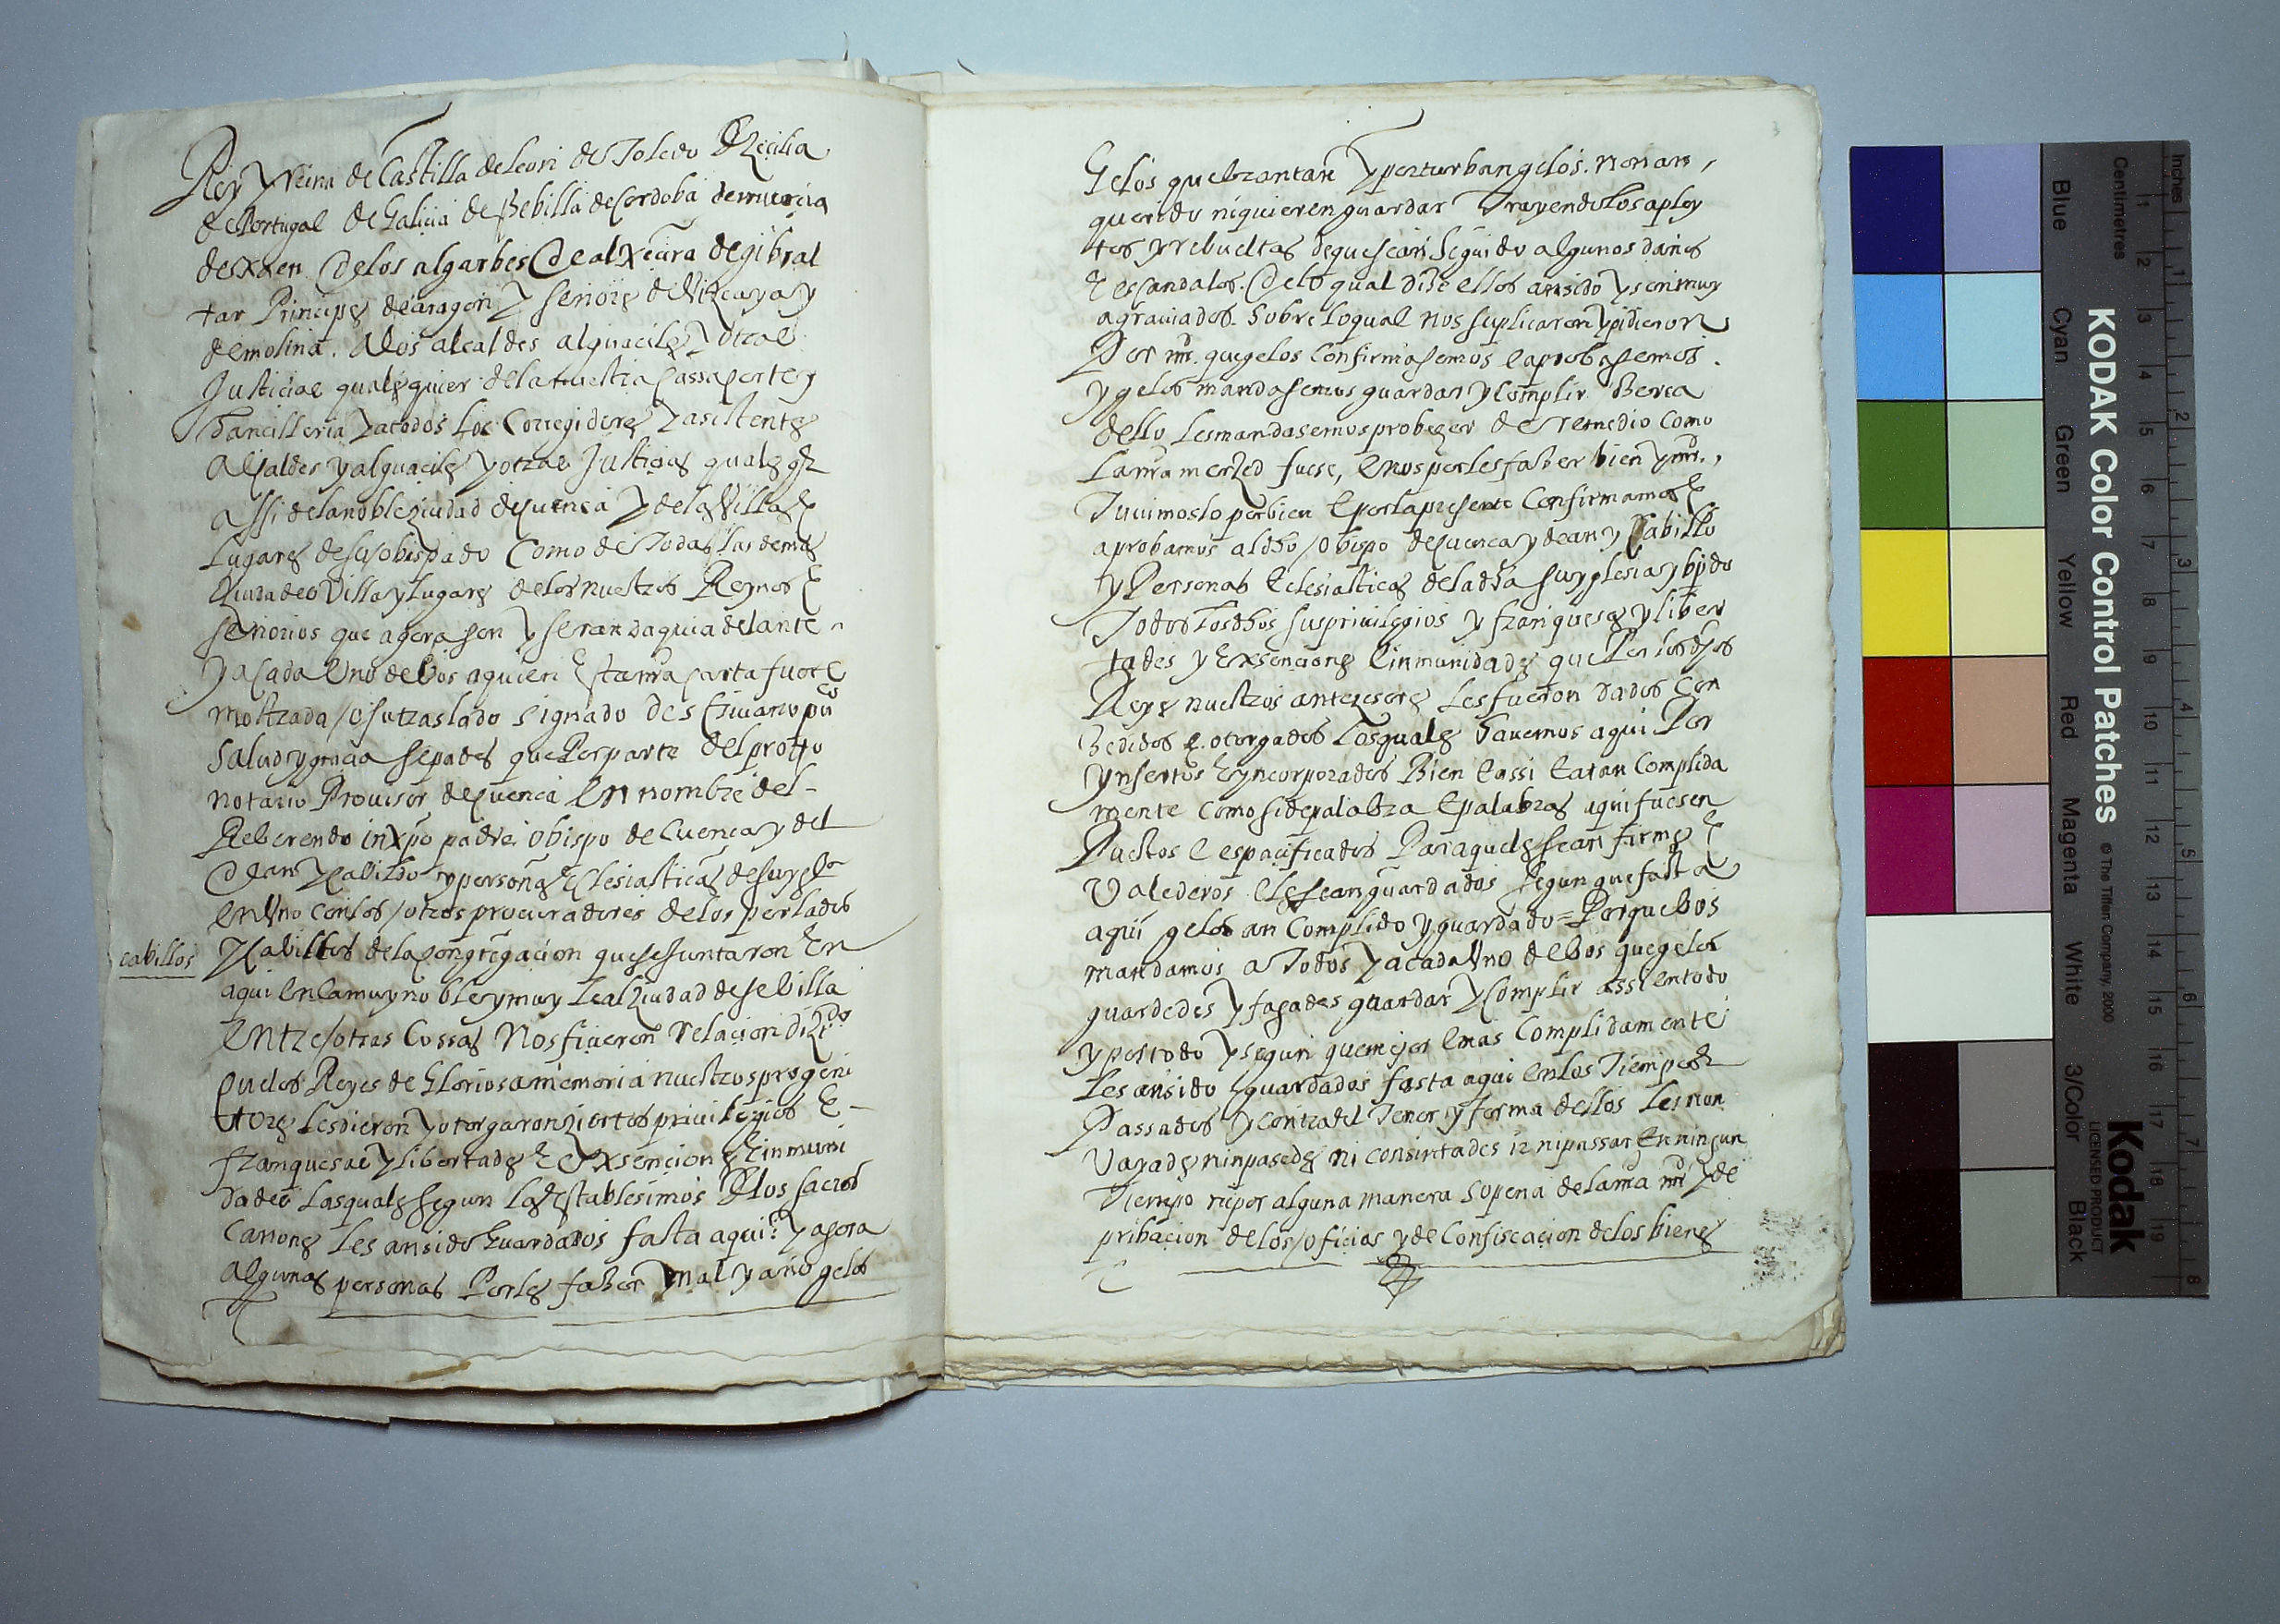 Rey y Reina de Castilla de leon de Toledo de Zecilia
de Portugal de Galicia de Sebilla de Cordoba de murcia
de Xaen de los algarbes de alxecira de gibral
tar Principes de aragon y señores de Vizcaya y
de molina. A los alcaldes alguaciles y otras
Justicias qualesquier de la nuestra cassa corte y
chancilleria y a todos los Corregidores y asistentes
alcaldes y alguaciles y otras Justicias quales
assi de la noble ziudad de cuenca y de las Villas e
lugares de su obispado Como de Todas las demas
ziudades Villas y lugares de los nuestros Reynos e
señorios que agora son y seran daqui adelante
y a cada Uno de bos a quien esta nra carta fuere
mostrada / o su traslado signado de escriuano puco
salud y gracia sepades que Por parte del protto
notario Prouisor de cuenca en nombre del
Reberendo in xpo padre obispo de Cuenca y del
dean y cavildo y personas Eclesiasticas de su ygla
en Uno con los / otros procuradores de los perlados
cabillos
y cavillos de la congregacion que se juntaron en
aqui en la muy noble y muy leal ziudad de sebilla
entre / otras Cossas Nos ficieron relacion dizdo
que los Reyes de Gloriosa memoria nuestros progeni
tores les dieron y otorgaron ziertos privilegios e
franquesas y libertades e exsenciones e inmuni
dades las quales segun los establesimos de los sacros
canones les an sido guardados fasta aqui: y agora
algunas personas Por les fazer mal y año gelos
Gelos quebrantan y perturban gelos. non an
querido ni quieren guardar Trayendolos a pley
tos y rebueltas de que se an seguido algunos daños
e escandalos. de lo qual diz e ellos an sido y son muy
agraviados. sobre lo qual nos suplicaron y pidieron
Por mrd. que gelos confirmasemos e aprobasemos.
y gelos mandasemos guardar y complir Berca
dello les mandasemos probeyer de remedio como
la nra merzed fuese, e nos por les fazer bien y mrd.,
Tuuimoslo por bien e por la presente Confirmamos e
aprobamos al dho / obispo de cuenca y dean y Cabillo
y Personas Eclesiasticas de la dha su yglesia y obpdo
Todos los dhos sus priuilegios y franquesas y liber
tades y exsenciones e inmunidades que Por los dhos
Reyes nuestros antezesores les fueron dados con
Zedidos e otorgados los quales hauemos aqui Por
ynsertos e yncorporados Bien e assi e a tan Complida
mente como si de palabra e palabras aqui fuesen
Puestos e espacificados Para que les sean firmes e
Valederos e les sean guardados segun que fasta
aqui gelos an Complido y guardado = Porque bos
mandamos a Todos y a cada Uno de bos que gelos
guardedes y fagades guardar y complir assi en todo
y por todo y segun que mejor e mas complidamente
les an sido guardados fasta aqui en los Tiempos
Passados y contra el Tenor y forma dellos les non
Vayades nin pasedes ni consintades ir ni passar en ningun
Tiempo ni por alguna manera so pena de la nra mrd y de
pribacion de los / oficios y de Confiscacion de los bienes